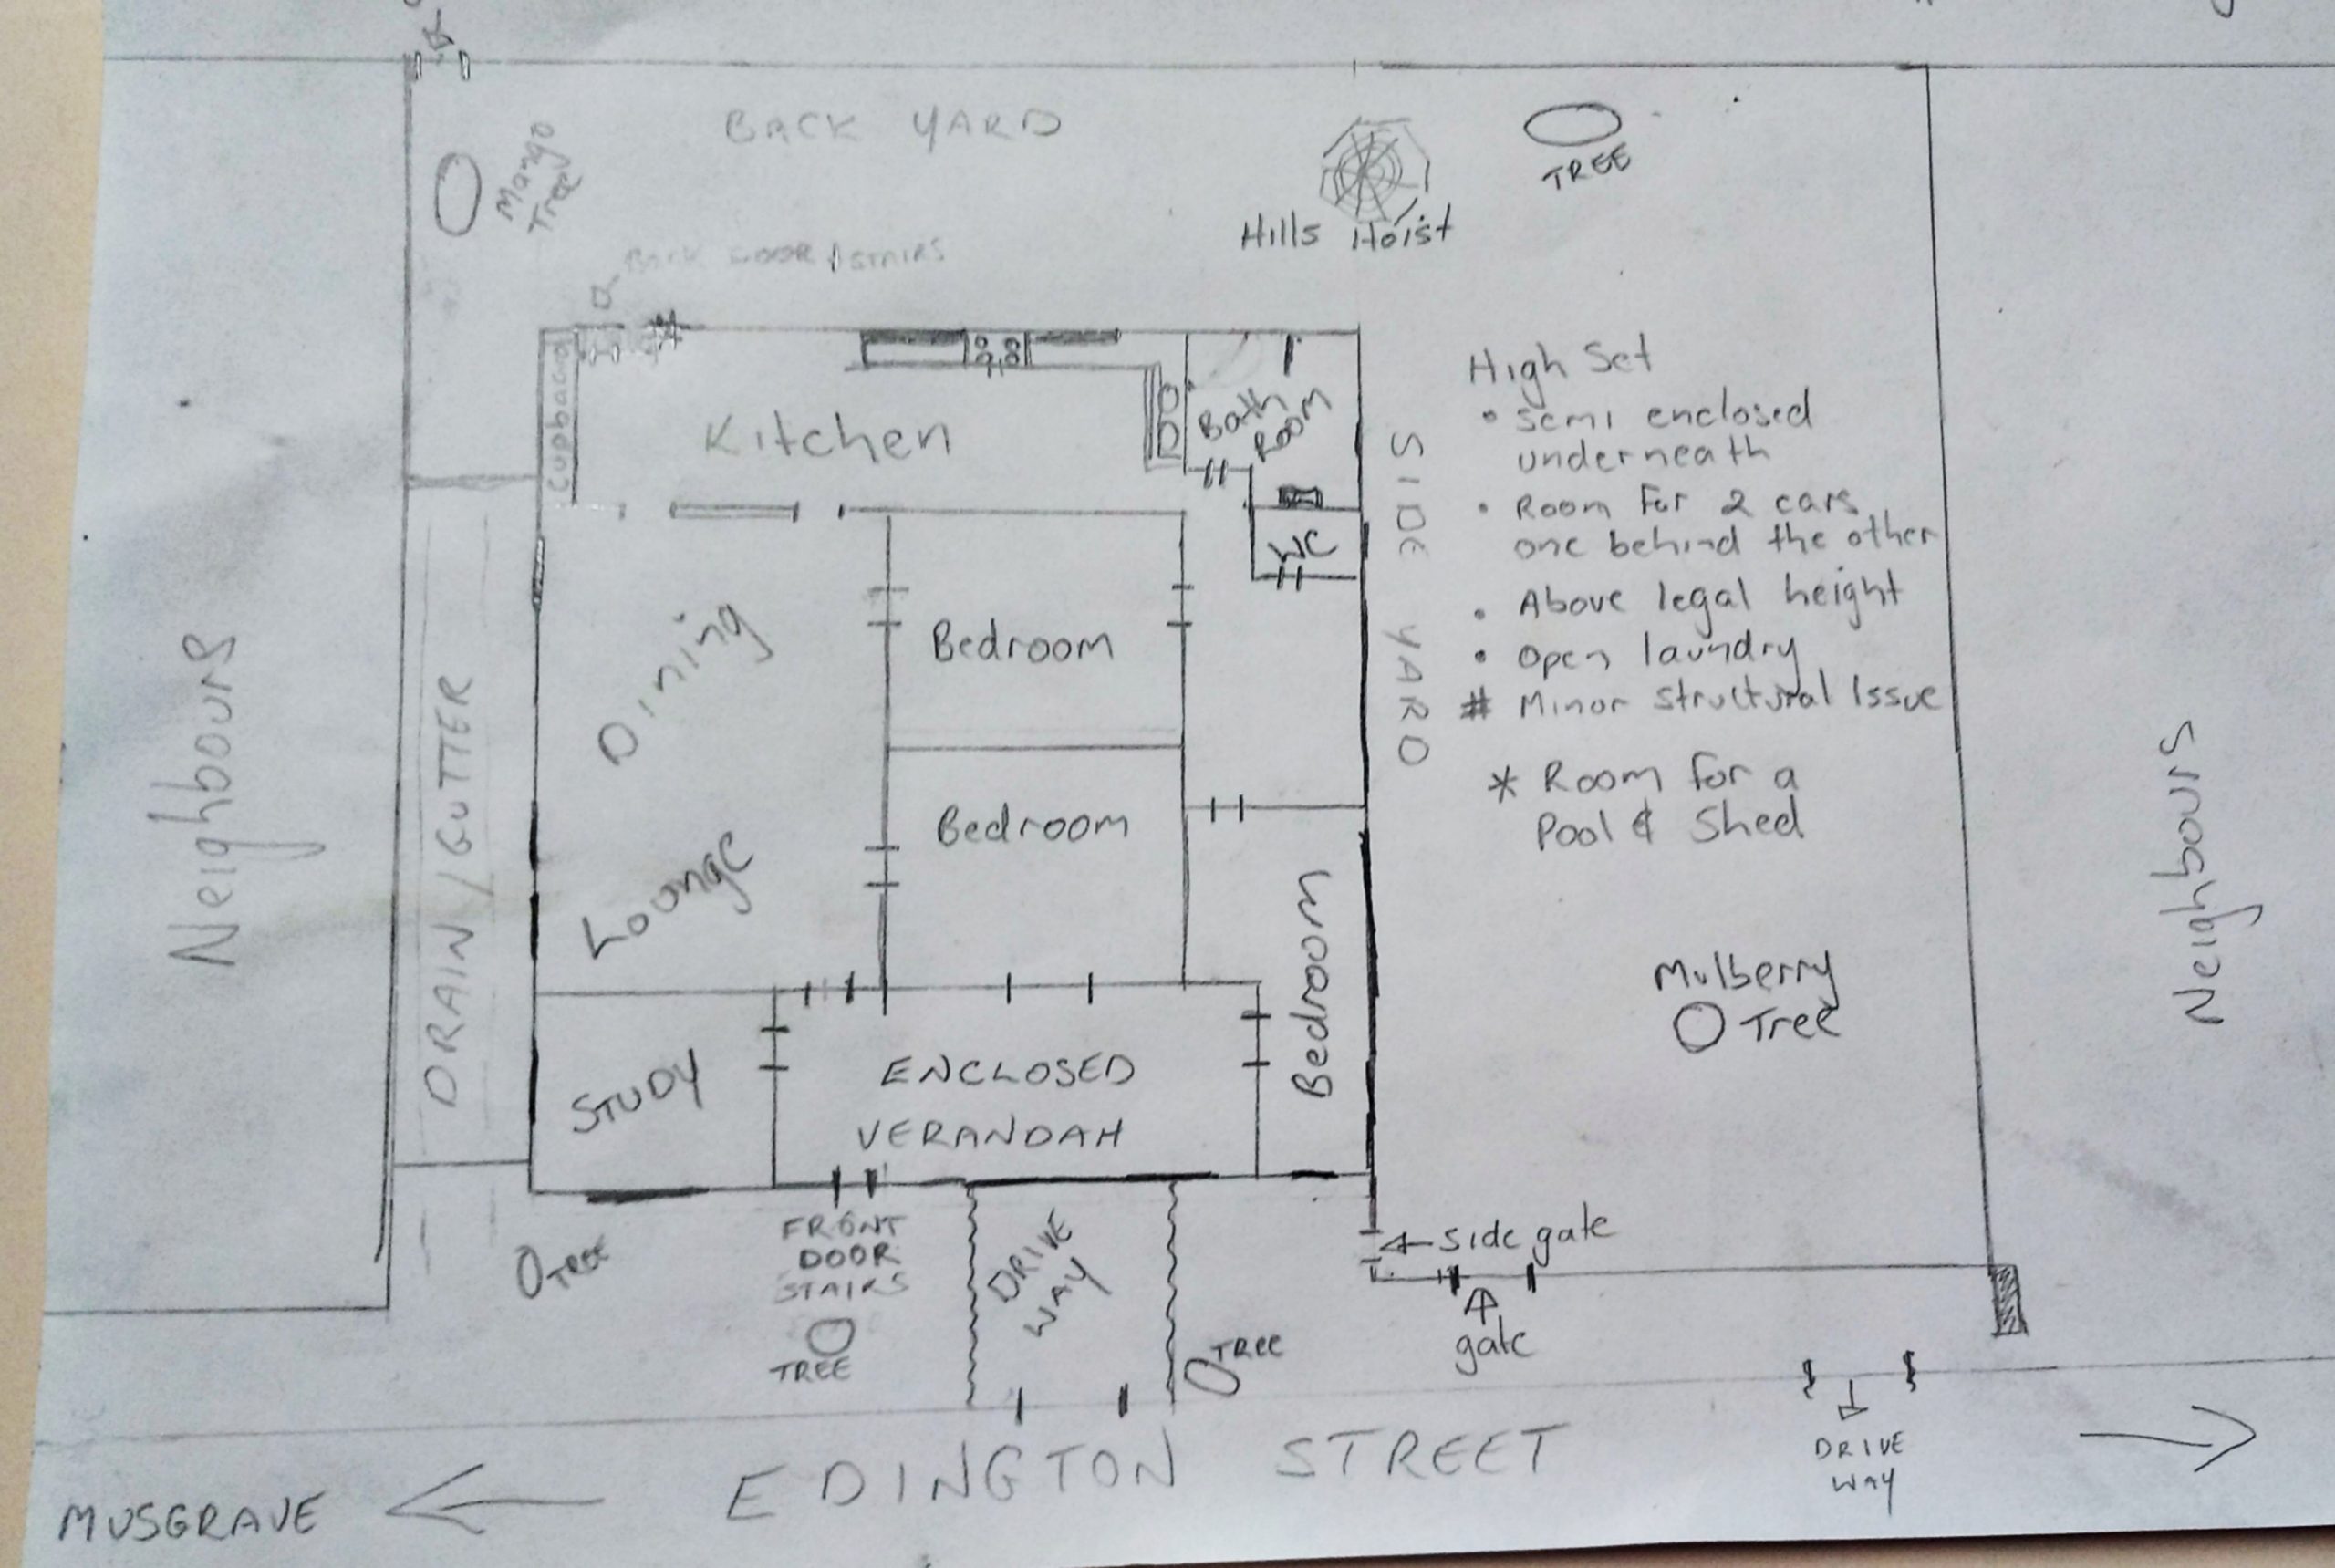 BACK YARD
Mango
Tree
TREE
Hills Hoist
BACK DOOR / STAIRS
Cupboard
Kitchen
Bath
Room
WC
SIDE YARD
High Set
• Semi enclosed
underneath
• Room for 2 cars
one behind the other
• Above legal height
• Open laundry
# Minor structural Issue
* Room for a
Pool & Shed
Dining
Bedroom
Neighbours
DRAIN/GUTTER
Lounge
Bedroom
Bedroom
Mulberry
Tree
Neighbours
STUDY
ENCLOSED
VERANDAH
TREE
FRONT
DOOR
STAIRS
TREE
DRIVE
WAY
TREE
side gate
gate
MUSGRAVE
EDINGTON STREET
DRIVE
WAY